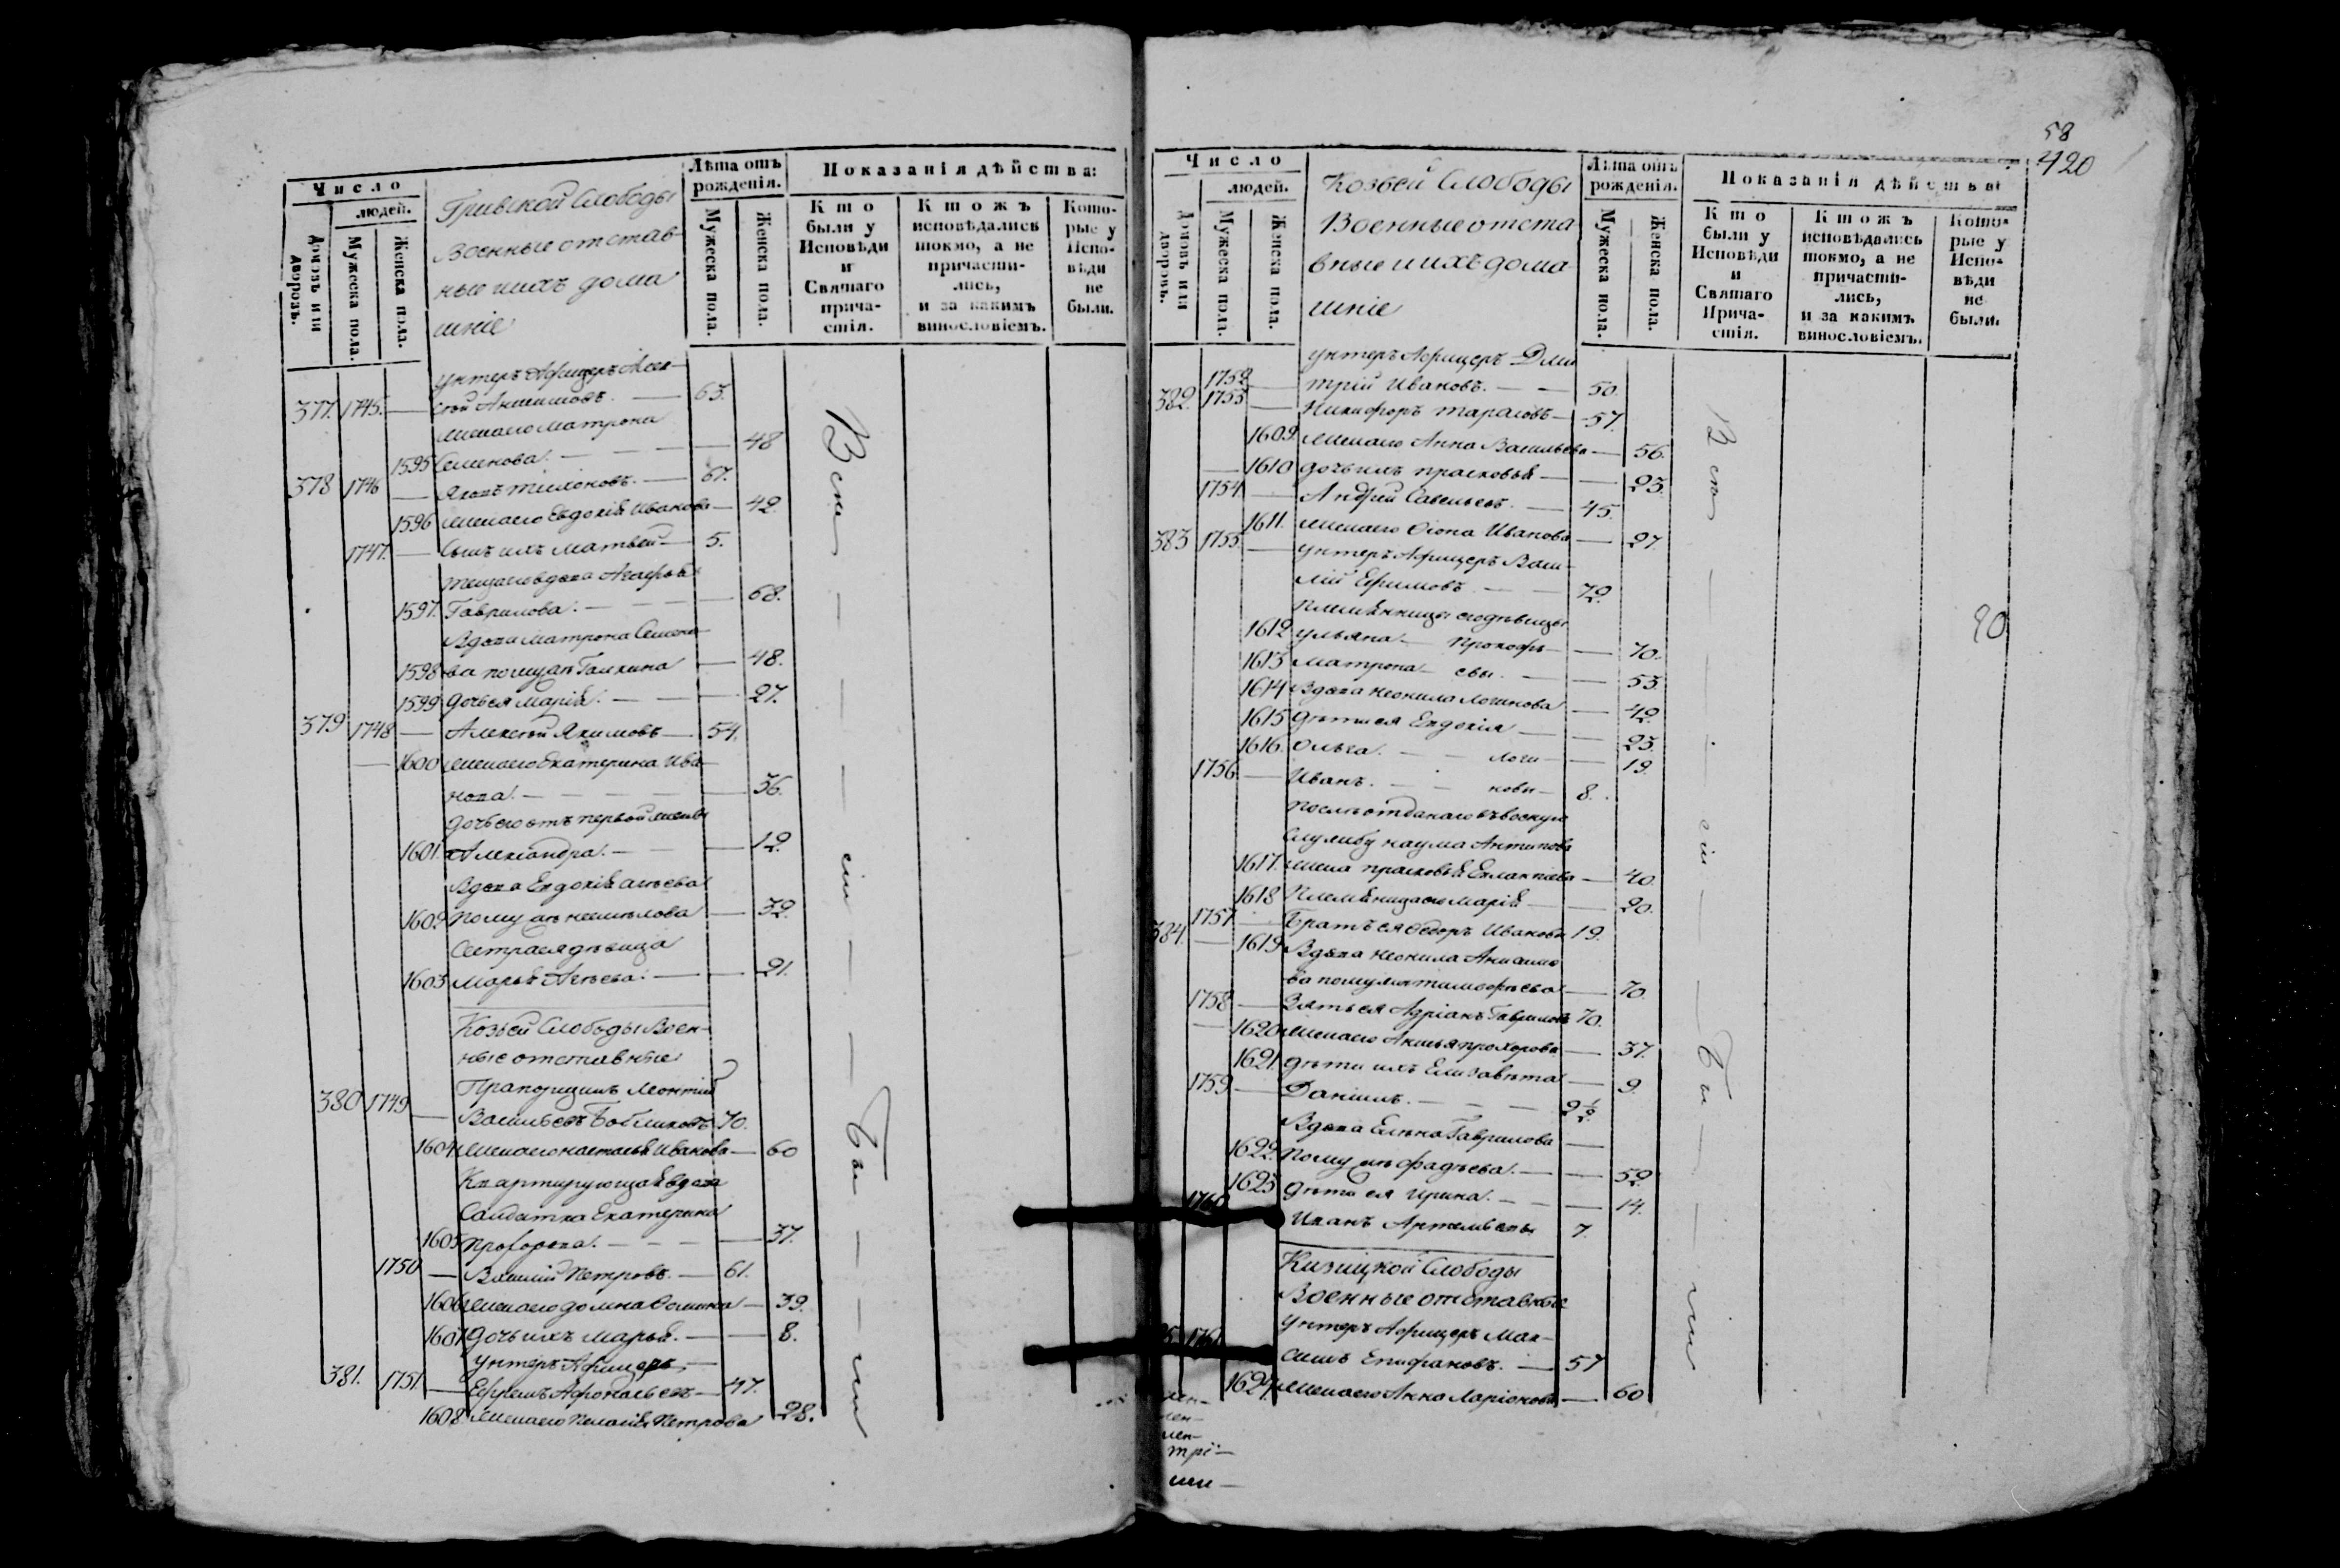 Число
людей.
Домовъ или дворовъ.
Мужеска пола.
Женска пола.
Гривской Слободы
Военные отстав-
ные и ихъ дома
шніе
Лѣта отъ рожденія.
Мужеска пола.
Женска пола.
Показанія дѣйства:
Кто были у Исповѣди и Святаго причастія.
Ктожъ исповѣдались токмо, а не причастились, и за какимъ винословіемъ.
Которые у Исповѣди не были.
унтеръ Афицеръ Алек-
377. 1745. — сѣй Анисимовъ. — 63.
жена его Матрона
1595 Семенова. — — — 48
378 1746 — Яковъ Тихоновъ. — 67.
1596 жена его Евдокія Иванова — 42.
1747. — Сынъ ихъ Матвей — 5.
теща его вдова Агафья
1597. Гаврилова. — — — 68.
Вдова Матрона Семено-
1598 ва по мужѣ Галкина — 48.
1599 дочь ея Марія. — — 27.
379 1748 — Алексѣй Якимовъ — 54.
— 1600 жена его Екатерина Ива-
нова. — — — — 36.
дочь его отъ первой жены
1601. Александра. — — 12.
Вдова Евдокія
1602 по мужѣ — 32.
Сестра ея дѣвица
1603 Марья Агѣева. — — 21.
Козьей Слободы Воен-
ные отставные
Прапорщикъ Леонтій
380 1749 — Васильевъ 70.
1604 жена его Настасья Иванова — 60
Квартирующая вдова
Салдатка Екатерина
1605 Прохорова. — — — 37.
1750 — Василій Петровъ. — 61.
1606 жена его Домна Фомина — 39.
1607 дочь ихъ Марья. — — 8.
унтеръ Афицеръ —
381. 1751. — Ефремъ Афонасьевъ — 47.
1608 жена его Пелагія Петрова 28.
Вси — — — — сіи — — — Бы — — — ли
58
420
Число
людей.
Домовъ или дворовъ.
Мужеска пола.
Женска пола.
Козьей Слободы
Военные отста
вные и ихъ дома
шніе
Лѣта отъ рожденія.
Мужеска пола.
Женска пола.
Показанія дѣйства:
Кто были у Исповѣди и Святаго Причастія.
Ктожъ исповѣдались токмо, а не причастились, и за какимъ винословіемъ.
Которые у Исповѣди не были.
унтеръ Афицеръ Дми
1752 — трій Ивановъ. — — 50.
382. 1753 — Никифоръ Тарасовъ — 57.
1609. жена его Анна Васильева — 56.
— 1610 дочь ихъ Прасковья — — 23.
1754 — Андрей Савельевъ. — 45.
1611. жена его Иванова — 27.
383 1755. — унтеръ Афицеръ Васи-
лій Ефимовъ. — — 72.
племянницы его дѣвицы
1612 Ульяна — Прокофь — — 70.
1613 Матрона — евы. — — 53.
1614 Вдова Неонила Логинова — 42.
1615 дѣти ея Евдокія — — 23.
1616. Ольга. — — Логи — — 19.
1756. — Иванъ. — — новы — 8.
послѣ отданаго въ воскую
службу Наума Антипова
1617. жена Прасковья — 40.
1618 Племяница его Марія — — 20.
1757 — Братъ ея Федоръ Ивановъ 19.
384. — 1619 Вдова Неонила Аниси
ва по мужѣ Тимофѣева — 70.
1758 — Зять ея Адріанъ Гавриловъ 70.
— 1620 жена его Прохорова — 37.
1621. дѣти ихъ Елизавѣта — 9.
1759 — Даніилъ. — — — 2½
Вдова Елена Гаврилова —
1622. по мужѣ Фадѣева. — — 52.
1623 дѣти ея Ирина. — — 14.
1760 Иванъ Артемьевы 7.
Кизицкой Слободы
Военные отставные
унтеръ Афицеръ Мак-
симъ Епифановъ. — 57
1624. жена его Анна Ларіонова — 60
Вси — — — — сіи — — — Бы — — — ли
20.